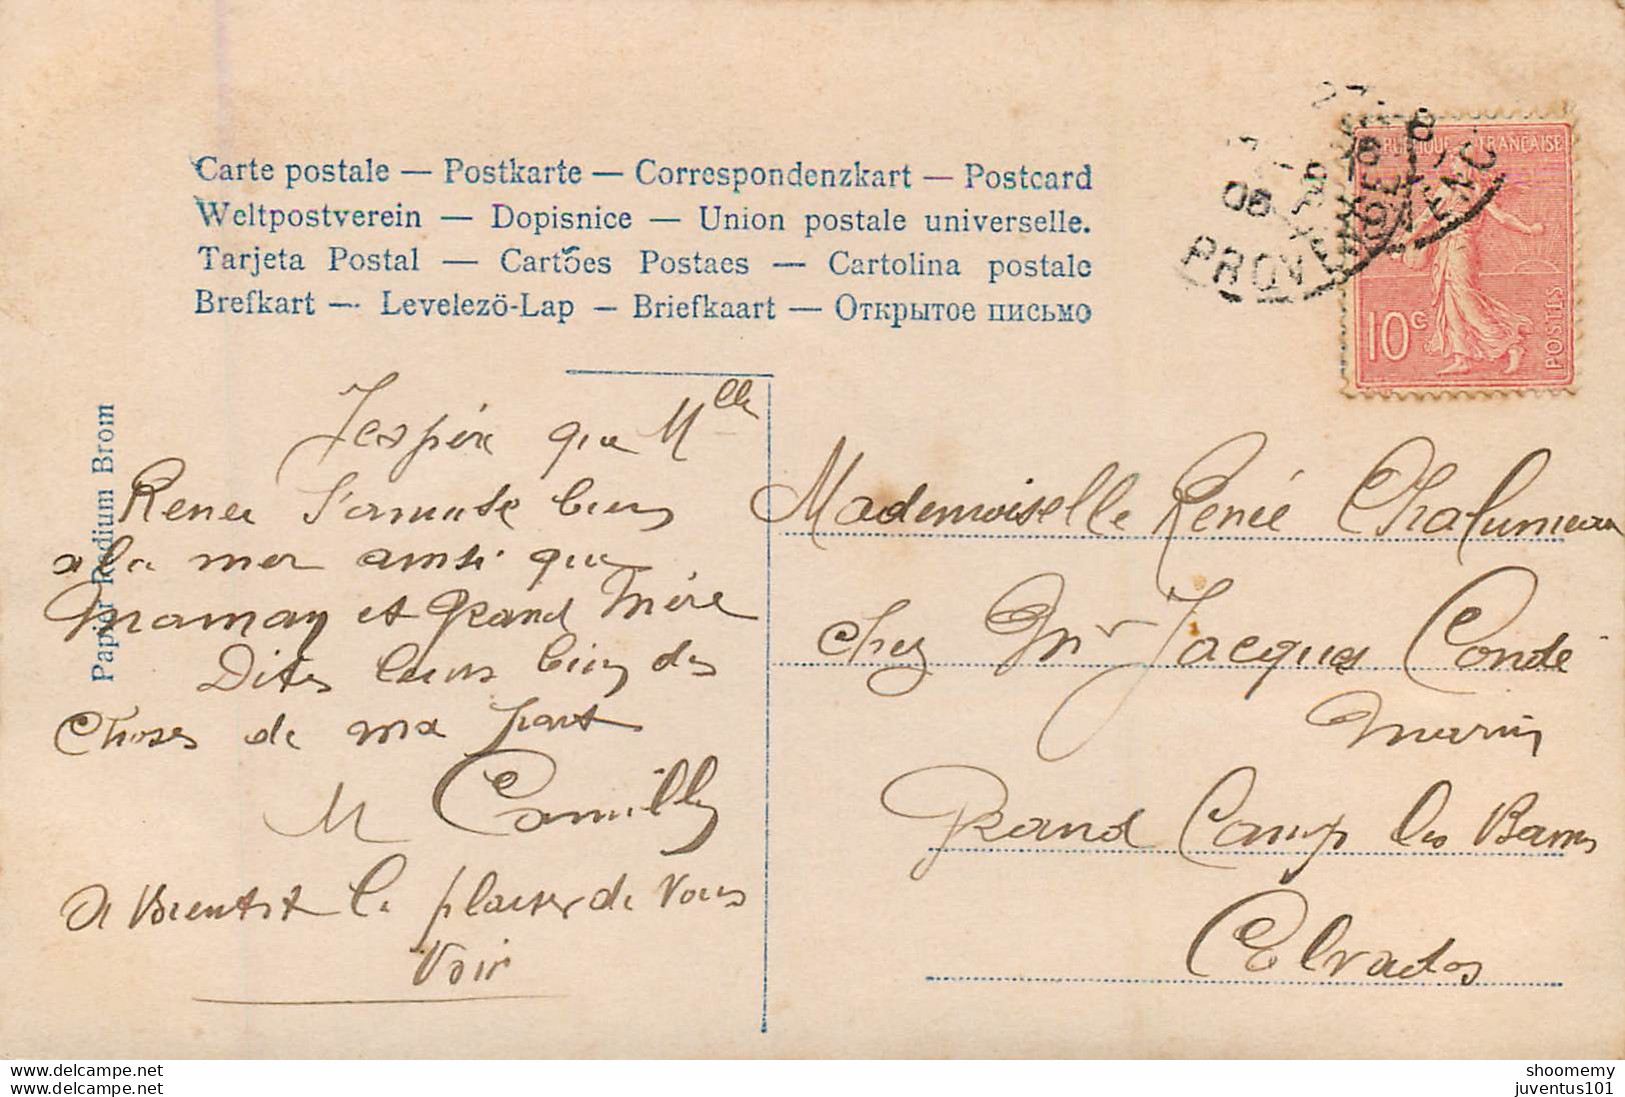 Carte postale — Postkarte — Correspondenzkart — Postcard
Weltpostverein — Dopisnice — Union postale universelle.
Tarjeta Postal — Cartões Postaes — Cartolina postale
Brefkart — Levelező-Lap — Briefkaart — Открытое письмо
Papier Radium Brom
RÉPUBLIQUE FRANÇAISE
10c
POSTES
06
PROVENCE
J'espère que Mlle
Renee s'amuse bien
a la mer ainsi que
Maman et Grand Mère
Dites leurs bien des
Choses de ma part
M Camille
A Bientot le plaiser de Vous
Voir
Mademoiselle Renée Chalumeau
chez Mr Jacques Condé
marin
Grand Camp les Bains
Calvados
shoomemy
juventus101
www.delcampe.net
www.delcampe.net